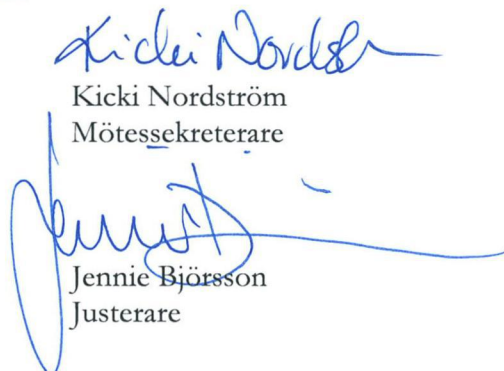 Kicki Nordström
Kicki Nordström
Mötessekreterare
Jennie Björsson
Justerare